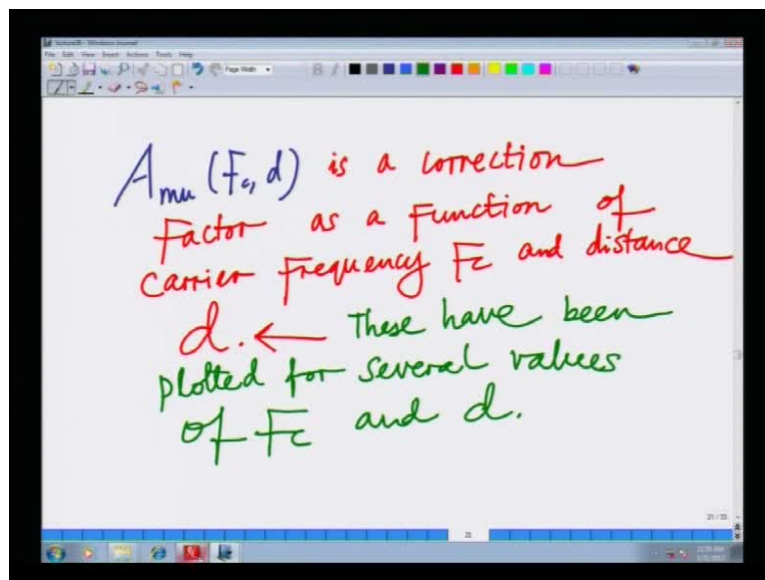 lecture28 - Windows Journal
File Edit View Insert Actions Tools Help
Page Width
A_mu (Fc, d) is a correction
Factor as a Function of
carrier Frequency Fc and distance
d. ← These have been
plotted for several values
of Fc and d.
21 / 35
21